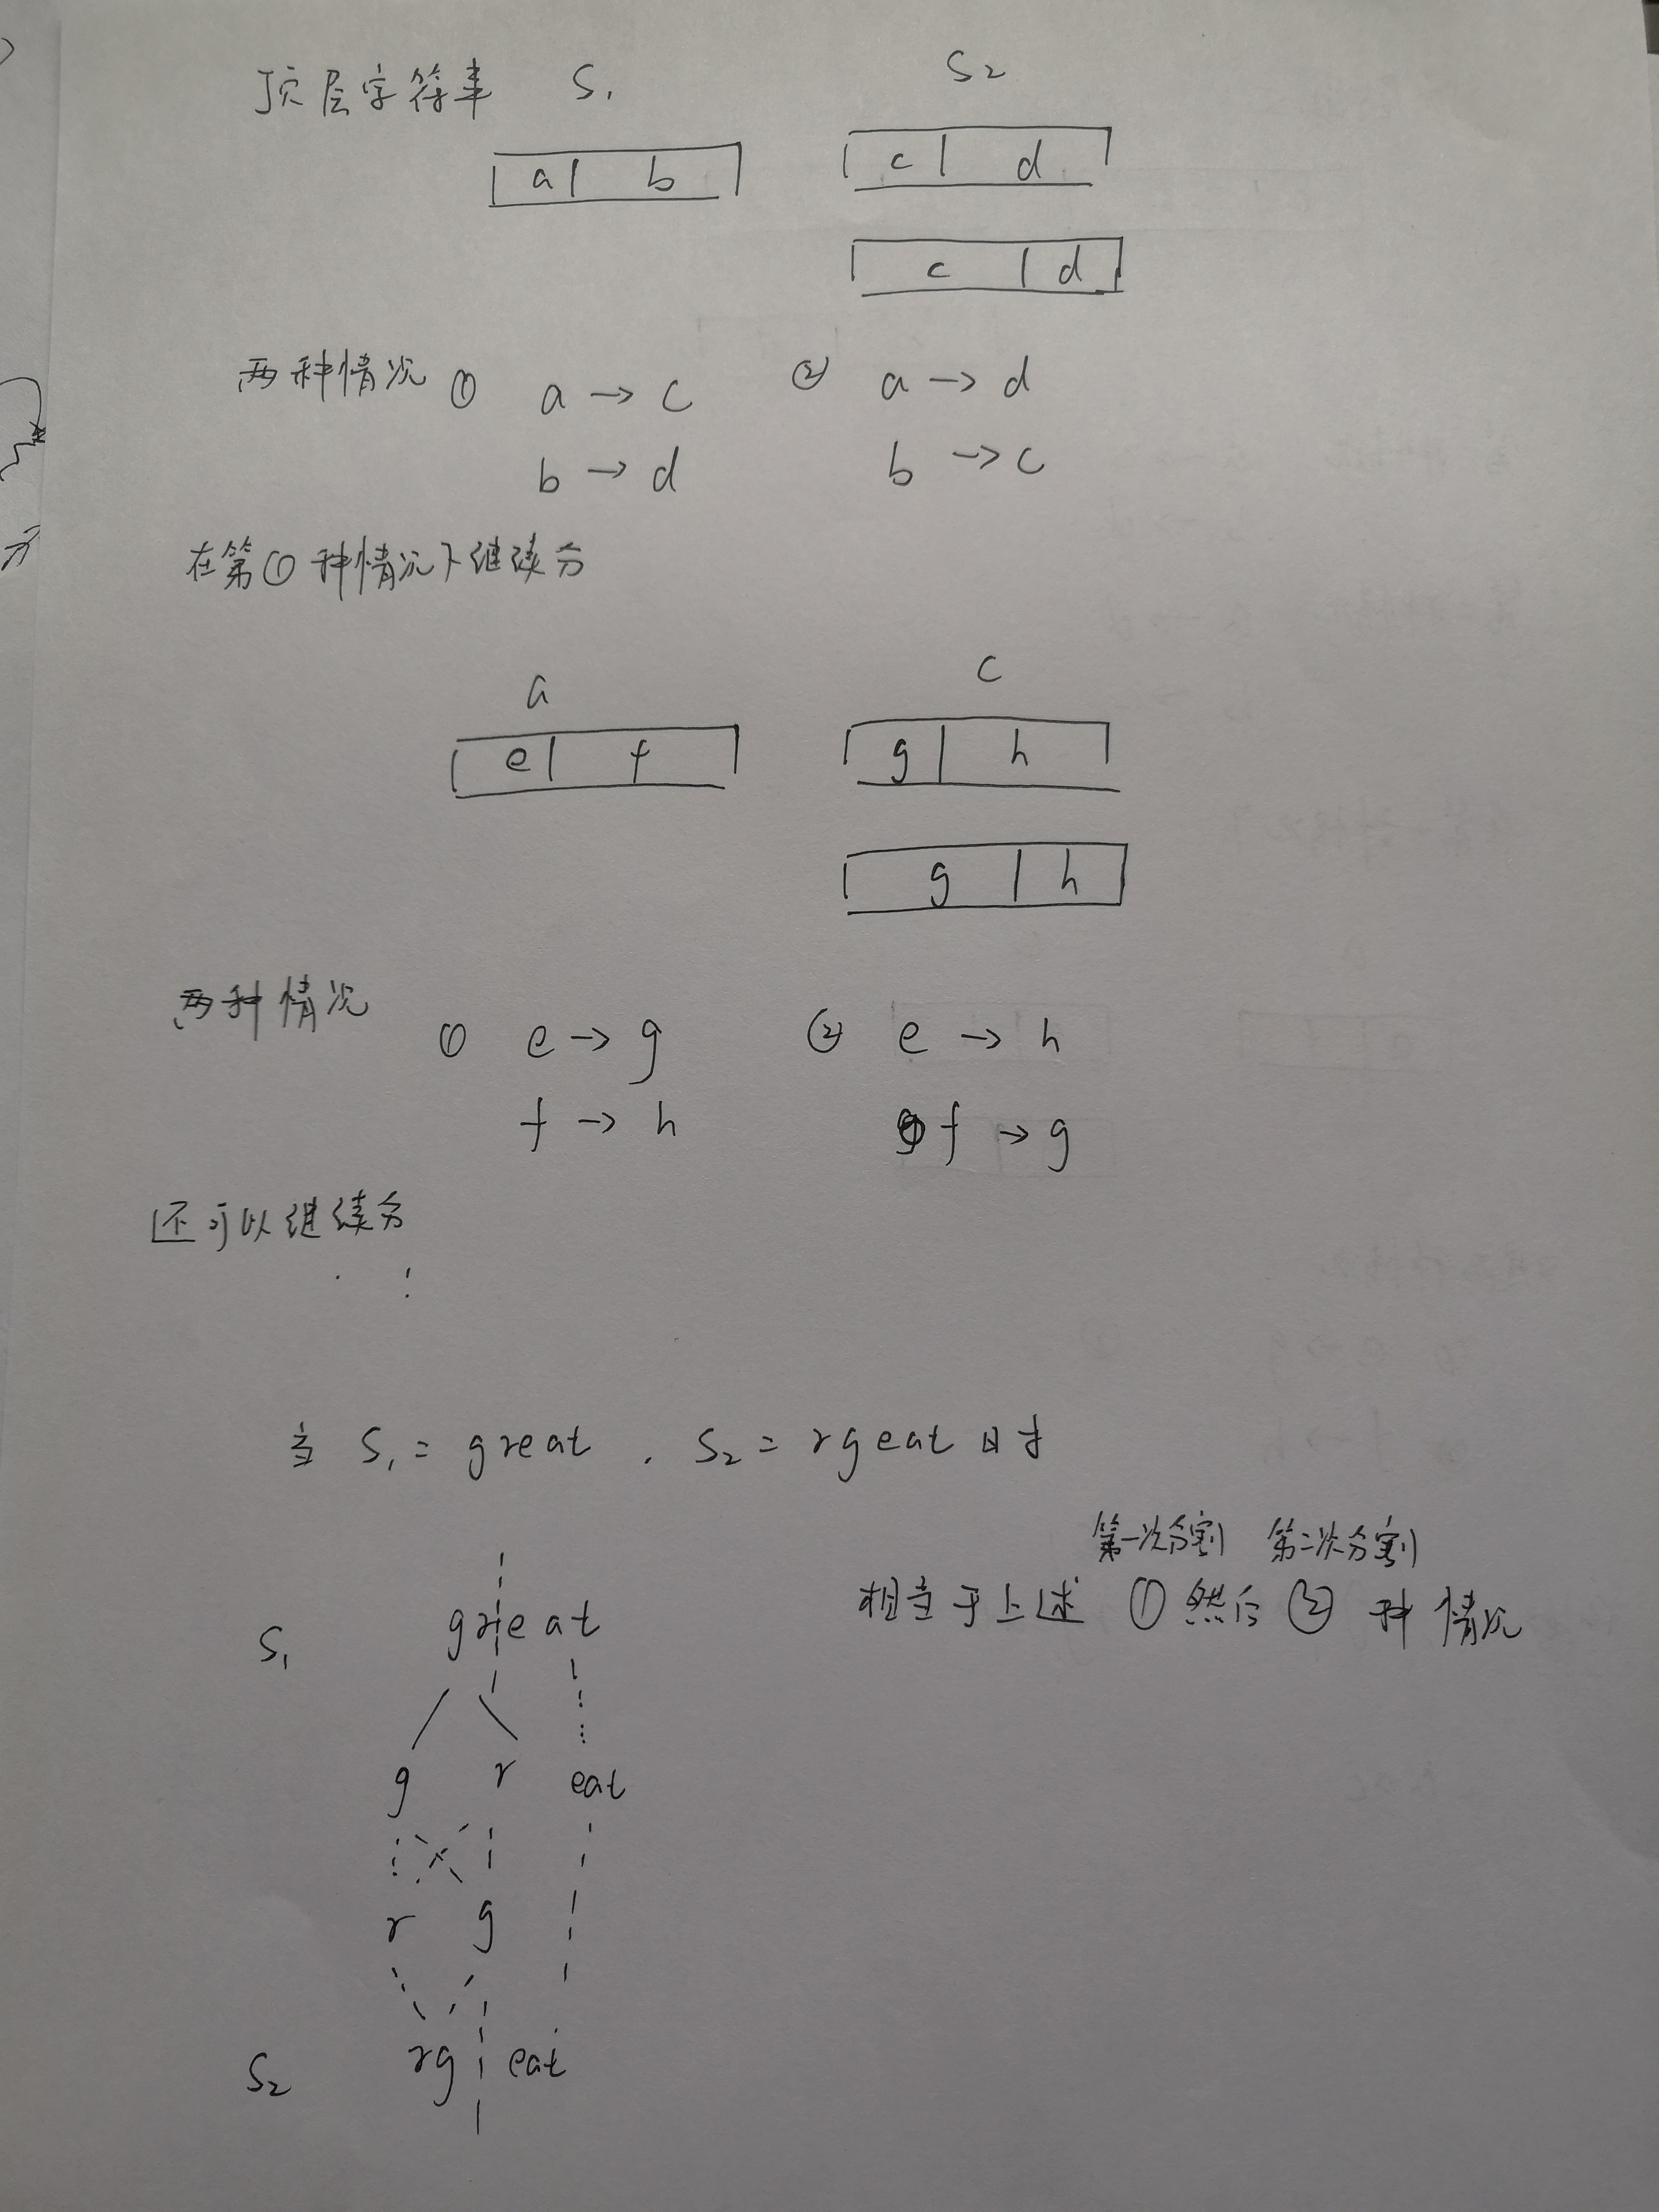 顶层字符串 S1 S2
a b c d
c d
两种情况 ① a → c ② a → d
b → d b → c
在第①种情况下继续分
a c
e f g h
g h
两种情况 ① e → g ② e → h
f → h f → g
还可以继续分
当 S1 = great , S2 = rgeat 时
第一次分割 第二次分割
相当于上述 ① 然后 ② 种情况
S1 great
g r eat
r g
S2 rg eat